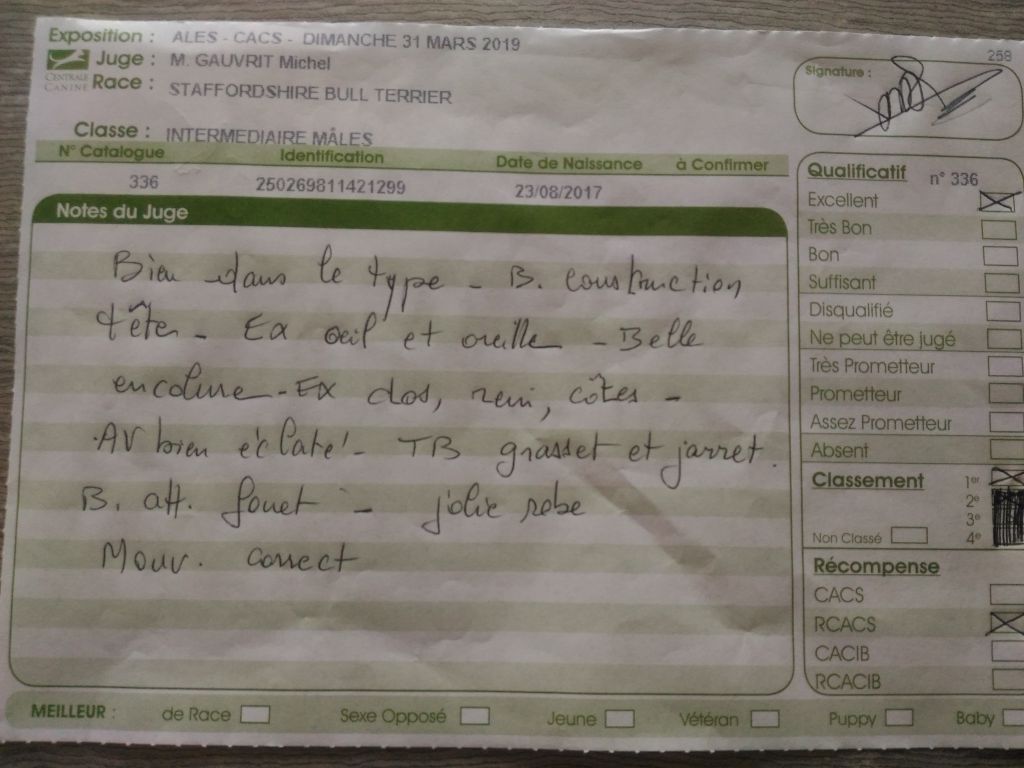 Exposition : ALES - CACS - DIMANCHE 31 MARS 2019
Juge : M. GAUVRIT Michel
CENTRALE CANINE
Race : STAFFORDSHIRE BULL TERRIER
Classe : INTERMEDIAIRE MÂLES
N° Catalogue Identification Date de Naissance à Confirmer
336 250269811421299 23/08/2017
Notes du Juge
Bien dans le type - B. construction
tête - Ex oeil et oreille - Belle
encolure - Ex dos, rein, côtes -
AV bien éclaté - TB grasset et jarret.
B. att. fouet - jolie robe
Mouv. correct
259
Signature :
Qualificatif n° 336
Excellent
Très Bon
Bon
Suffisant
Disqualifié
Ne peut être jugé
Très Prometteur
Prometteur
Assez Prometteur
Absent
Classement 1er
2e
3e
Non Classé 4e
Récompense
CACS
RCACS
CACIB
RCACIB
MEILLEUR : de Race Sexe Opposé Jeune Vétéran Puppy Baby